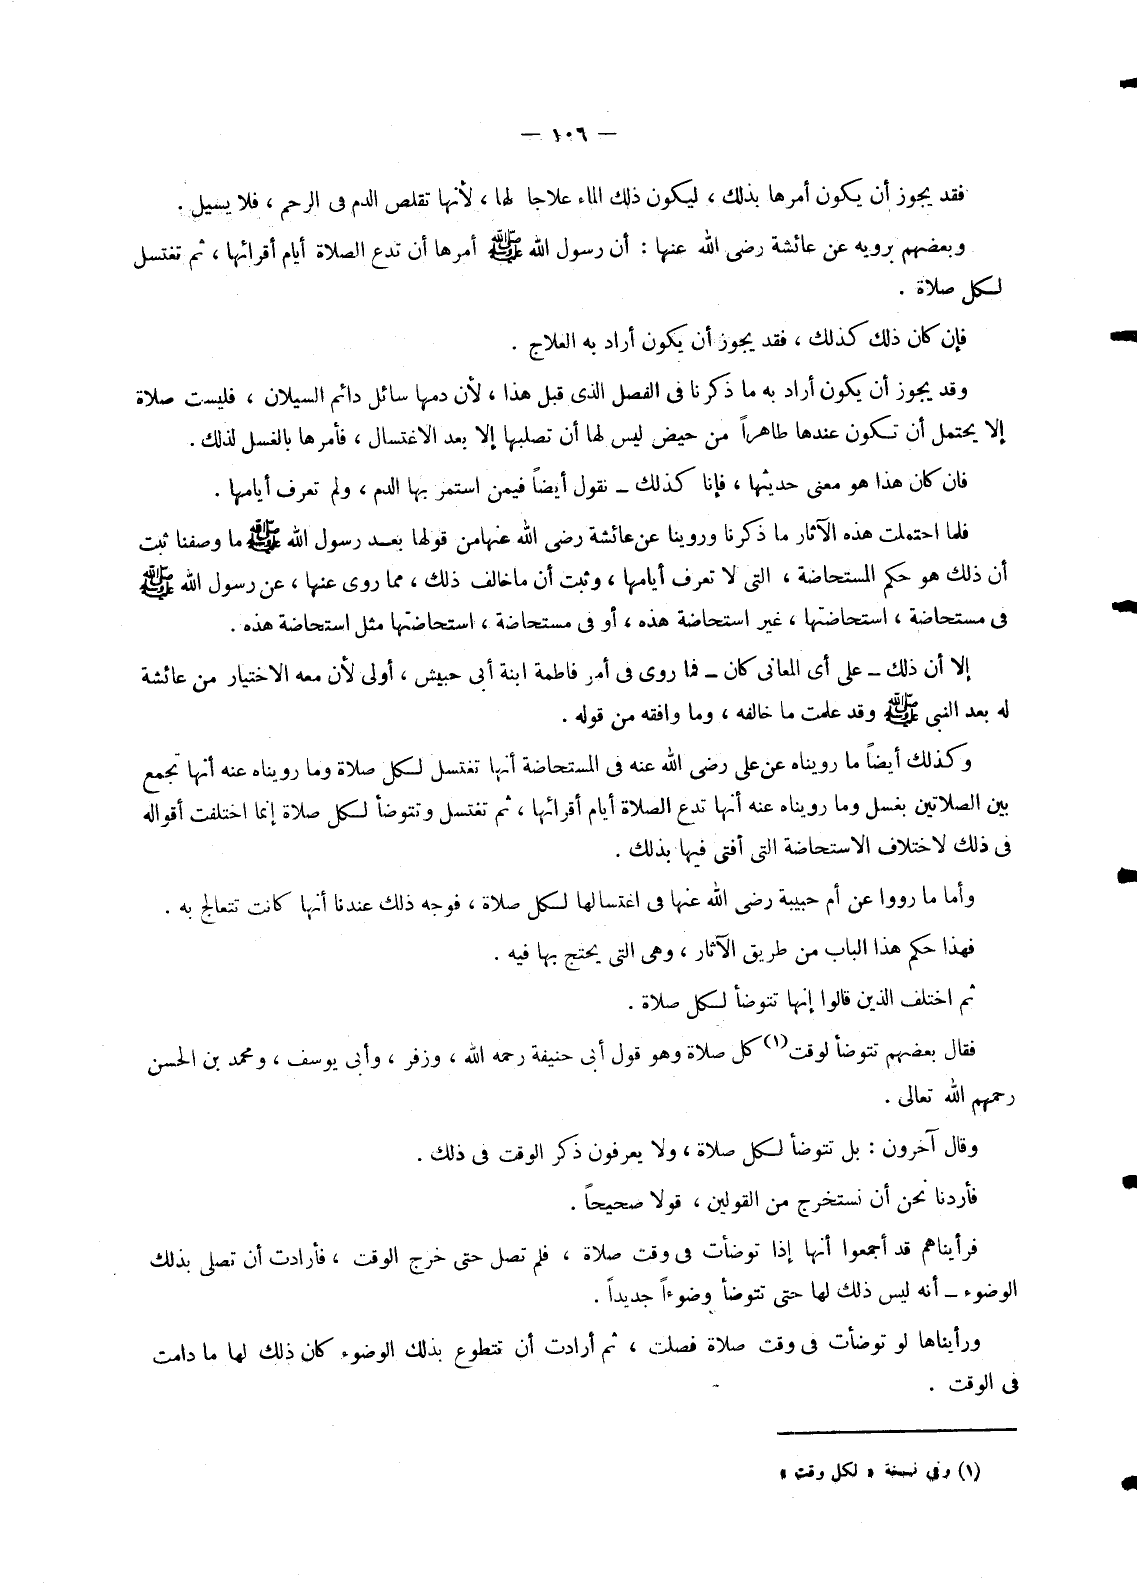 — ١٠٦ —
فقد يجوز أن يكون أمرها بذلك ، ليكون ذلك الماء علاجا لها ، لأنها تقلص الدم فى الرحم ، فلا يسيل .
وبعضهم يرويه عن عائشة رضى الله عنها : أن رسول الله ﷺ أمرها أن تدع الصلاة أيام أقرائها ، ثم تغتسل
لكل صلاة .
فإن كان ذلك كذلك ، فقد يجوز أن يكون أراد به العلاج .
وقد يجوز أن يكون أراد به ما ذكرنا فى الفصل الذى قبل هذا ، لأن دمها سائل دائم السيلان ، فليست صلاة
إلا يحتمل أن تكون عندها طاهراً من حيض ليس لها أن تصليها إلا بعد الاغتسال ، فأمرها بالغسل لذلك .
فان كان هذا هو معنى حديثها ، فإنا كذلك ــ نقول أيضاً فيمن استمر بها الدم ، ولم تعرف أيامها .
فلما احتملت هذه الآثار ما ذكرنا وروينا عن عائشة رضى الله عنها من قولها بعد رسول الله ﷺ ما وصفنا ثبت
أن ذلك هو حكم المستحاضة ، التى لا تعرف أيامها ، وثبت أن ما خالف ذلك ، مما روى عنها ، عن رسول الله ﷺ
فى مستحاضة ، استحاضتها ، غير استحاضة هذه ، أو فى مستحاضة ، استحاضتها مثل استحاضة هذه .
إلا أن ذلك ــ على أى المعانى كان ــ فما روى فى أمر فاطمة ابنة أبى حبيش ، أولى لأن معه الاختيار من عائشة
له بعد النبى ﷺ وقد علمت ما خالفه ، وما وافقه من قوله .
وكذلك أيضاً ما رويناه عن على رضى الله عنه فى المستحاضة أنها تغتسل لكل صلاة وما رويناه عنه أنها تجمع
بين الصلاتين بغسل وما رويناه عنه أنها تدع الصلاة أيام أقرائها ، ثم تغتسل وتتوضأ لكل صلاة إنما اختلفت أقواله
فى ذلك لاختلاف الاستحاضة التى أفتى فيها بذلك .
وأما ما رووا عن أم حبيبة رضى الله عنها فى اغتسالها لكل صلاة ، فوجه ذلك عندنا أنها كانت تتعالج به .
فهذا حكم هذا الباب من طريق الآثار ، وهى التى يحتج بها فيه .
ثم اختلف الذين قالوا إنها تتوضأ لكل صلاة .
فقال بعضهم تتوضأ لوقت(١) كل صلاة وهو قول أبى حنيفة رحمه الله ، وزفر ، وأبى يوسف ، ومحمد بن الحسن
رحمهم الله تعالى .
وقال آخرون : بل تتوضأ لكل صلاة ، ولا يعرفون ذكر الوقت فى ذلك .
فأردنا نحن أن نستخرج من القولين ، قولا صحيحاً .
فرأيناهم قد أجمعوا أنها إذا توضأت فى وقت صلاة ، فلم تصل حتى خرج الوقت ، فأرادت أن تصلى بذلك
الوضوء ــ أنه ليس ذلك لها حتى تتوضأ وضوءاً جديداً .
ورأيناها لو توضأت فى وقت صلاة فصلت ، ثم أرادت أن تتطوع بذلك الوضوء كان ذلك لها ما دامت
فى الوقت .
(١) وفي نسخة « لكل وقت »